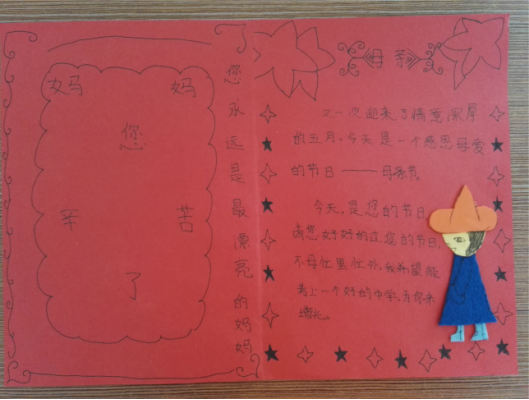 妈 妈
您
辛 苦
了
您永远是最漂亮的妈妈
母亲
又一次迎来了情意深厚
的五月,今天是一个感恩母爱
的节日——母亲节
今天,是您的节日
请您好好的过您的节日
不再忙里忙外,我希望能
考上一个好的中学,为你来
增光。